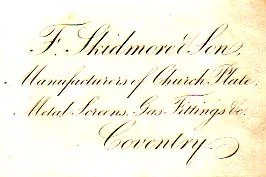 F. Skidmore & Son,
Manufacturers of Church Plate,
Metal Screens, Gas Fittings &c.
Coventry